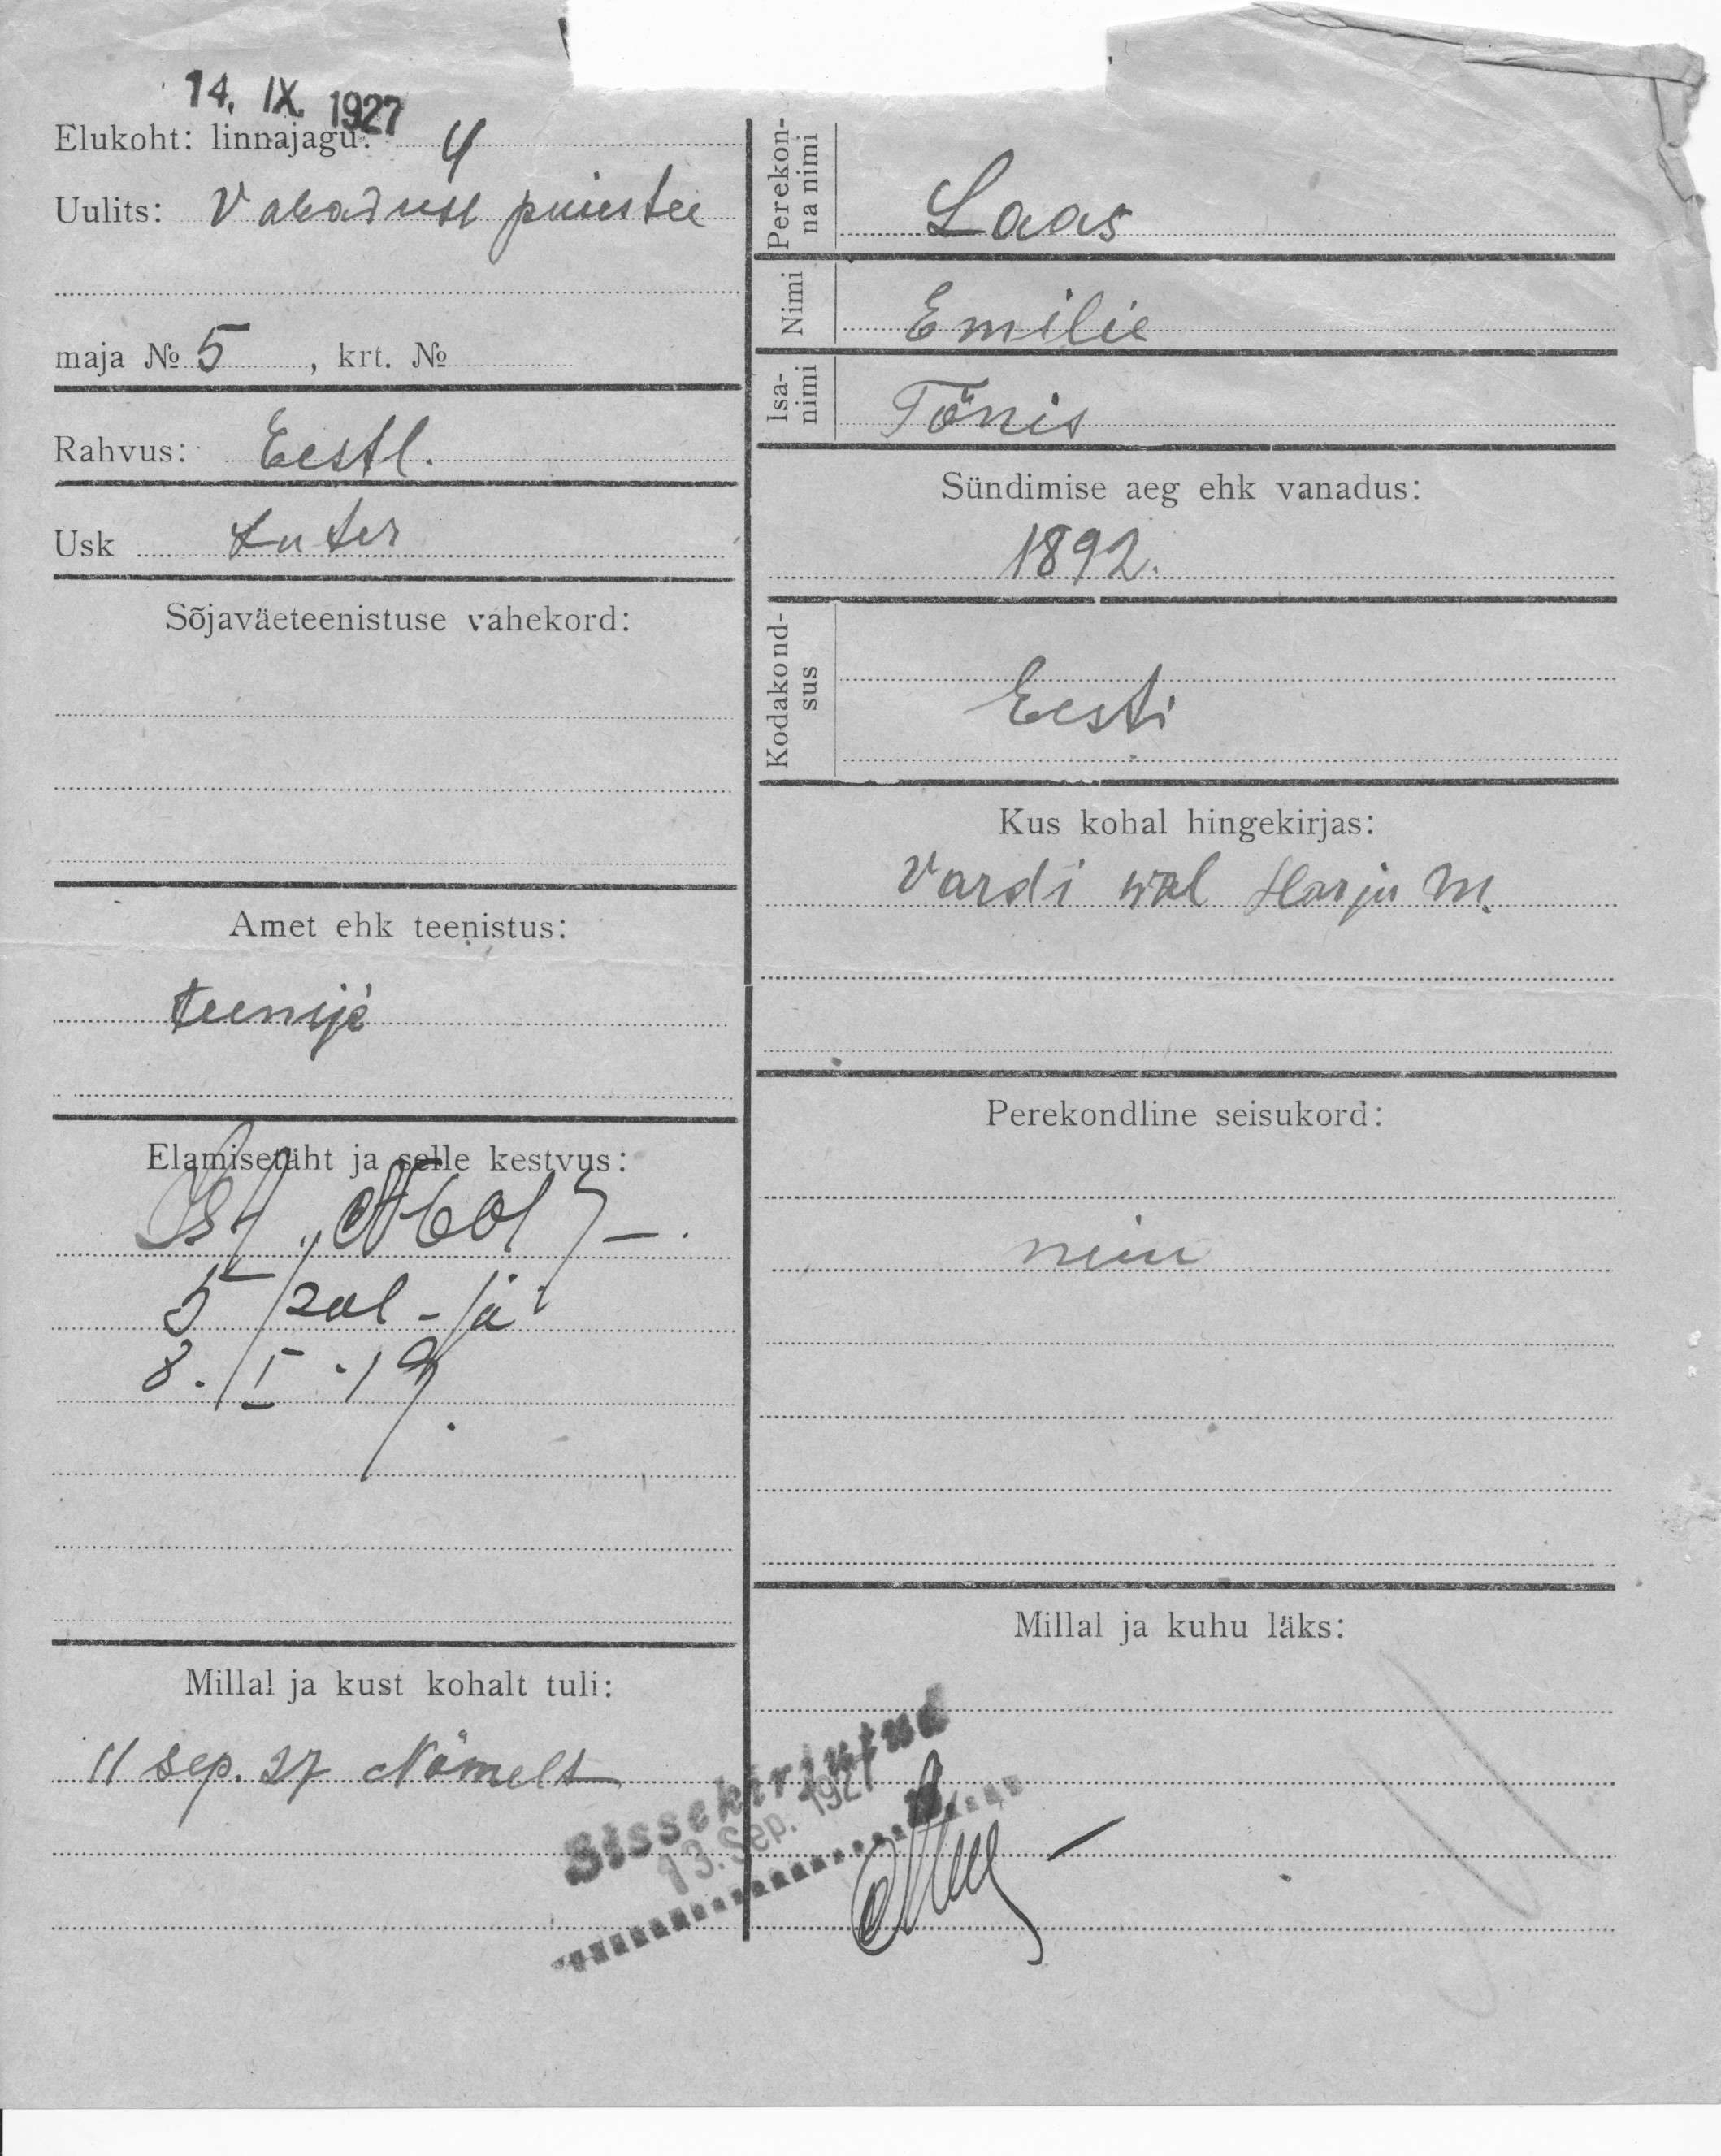 14. IX. 1927
Elukoht: linnajagu: 4
Uulits: Vabaduse puiestee
maja № 5 , krt. №
Rahvus: Eestl.
Usk Luter
Sõjaväeteenistuse vahekord:
Amet ehk teenistus:
teenija
Elamisetäht ja selle kestvus:
5
8. I. 19
Millal ja kust kohalt tuli:
11 sep. 27 Nõmelt
Perekonna nimi
Laas
Nimi
Emilie
Isanimi
Tõnis
Sündimise aeg ehk vanadus:
1892.
Kodakondsus
Eesti
Kus kohal hingekirjas:
Vardi wal Harju M.
Perekondline seisukord:
neiu
Millal ja kuhu läks:
Sissekirjutud
13. Sep. 1927